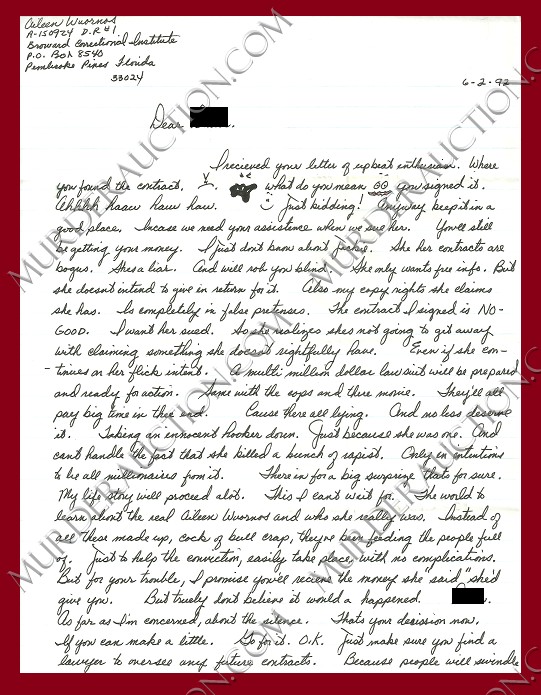 Aileen Wuornos
A-150924 D.R #1
Broward Correctional Institute
P.O. Box 8540
Pembroke Pines Florida
33024
6-2-92
Dear
I recieved your letter of upbeat enthusiasm. Where
you found the contract, what do you mean you signed it.
Ahhhh haww haww haw. Just kidding! Anyway keep it in a
good place, Incase we need your assistance when we sue her. You'll still
be getting your money. I just don't know about She her contracts are
bogus. Shes a liar. And will rob you blind. She only wants free info. But
she doesn't intend to give in return for it. Also my copy rights she claims
she has. Is completely in false pretenses. The contract I signed is NO-
GOOD. I want her sued. So she realizes shes not going to git away
with claiming something she doesn't rightfully have. Even if she con-
tinues on her flick intent. A multi million dollar lawsuit will be prepared
and ready for action. Same with the cops and there movie. They'll all
pay big time in thee end. Cause there all lying. And no less deserve
it. Taking an innocent Hooker down. Just because she was one. And
cant handle the fact that she killed a bunch of rapist. Only in intentions
to be all millionairs from it. There in for a big surprize thats for sure.
My life story will proceed alot. This I can't wait for. The world to
learn about the real Aileen Wuornos and who she really was. Instead of
all these made up, cock of bull crap, they've been feeding the people full
of. Just to help the conviction, easily take place, with no complications.
But for your trouble, I promise you'll recieve the money she "said" she'd
give you. But truely don't believe it would a happened.
As far as I'm concerned, about the silence. Thats your decission now.
If you can make a little. Go for it. O.K. Just make sure you find a
lawyer to oversee any future contracts. Because people will swindle
MURDERAUCTION.COM